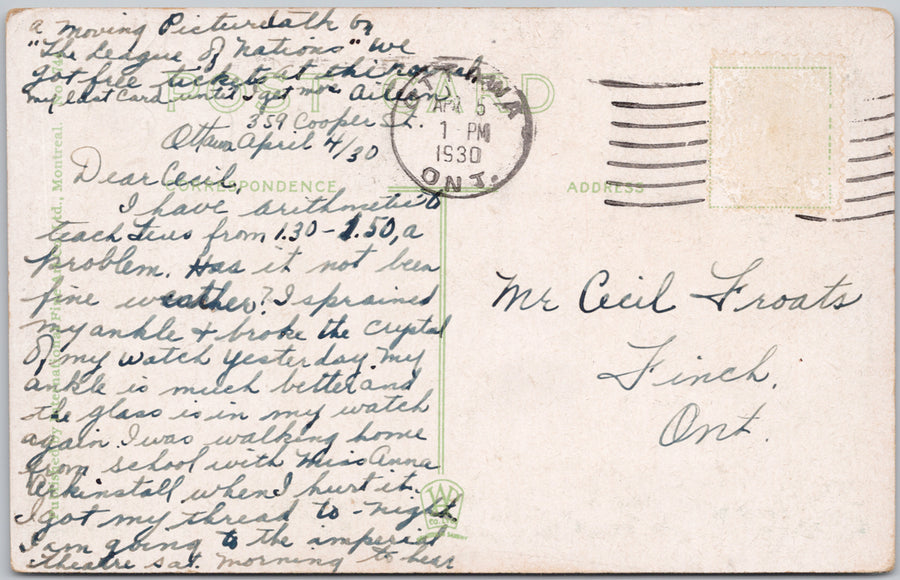 359 Cooper St.
Ottawa April 4/30
Dear Cecil,
I have arithmetic to
teach Tues from 1.30 - 1.50, a
problem. Has it not been
fine weather? I sprained
my ankle + broke the crystal
of my watch yesterday. My
ankle is much better and
the glass is in my watch
again. I was walking home
from school with Miss Anna
Aikinstall when I hurt it.
I got my thread to-night.
I am going to the imperial
theatre sat. morning to hear
a moving Picture on
"The League of Nations" We
got free tickets at
my last card until I get more Aileen
POST CARD
CORRESPONDENCE
ADDRESS
OTTAWA
APR 5
1 PM
1930
ONT.
Mr Cecil Froats
Finch,
Ont.
Published by International Fine Art Co., Ltd., Montreal.